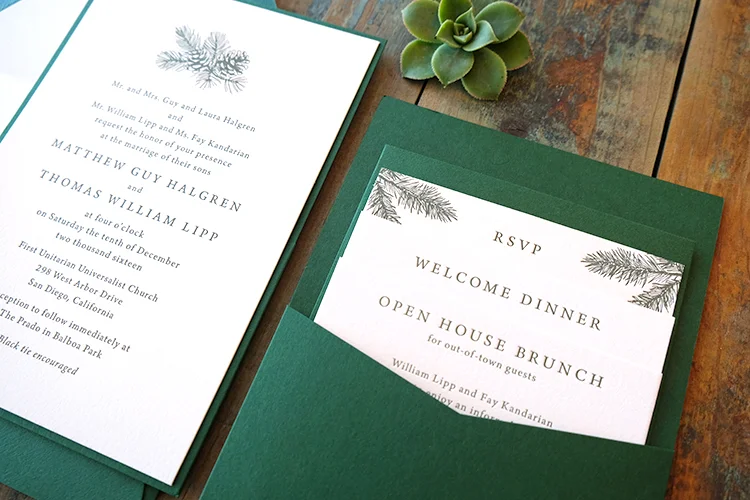 Mr. and Mrs. Guy and Laura Halgren
and
Mr. William Lipp and Ms. Fay Kandarian
request the honor of your presence
at the marriage of their sons
MATTHEW GUY HALGREN
and
THOMAS WILLIAM LIPP
at four o'clock
on Saturday the tenth of December
two thousand sixteen
First Unitarian Universalist Church
298 West Arbor Drive
San Diego, California
ception to follow immediately at
The Prado in Balboa Park
Black tie encouraged
RSVP
WELCOME DINNER
OPEN HOUSE BRUNCH
for out-of-town guests
William Lipp and Fay Kandarian
enjoy an infor